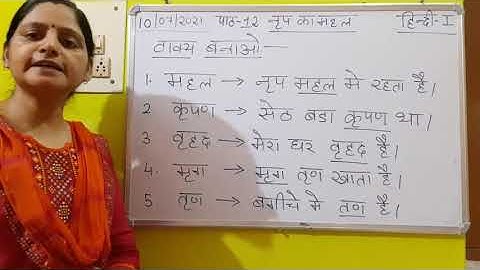 10/07/2021 पाठ-12 नृप का महल हिन्दी-I
वाक्य बनाओ—
1. महल → नृप महल मे रहता है।
2 कृपण → सेठ बडा कृपण था।
3 वृहद → मेरा घर वृहद है।
4. मृग → मृग तृण खाता है।
5 तृण → बगीचे मे तृण है।